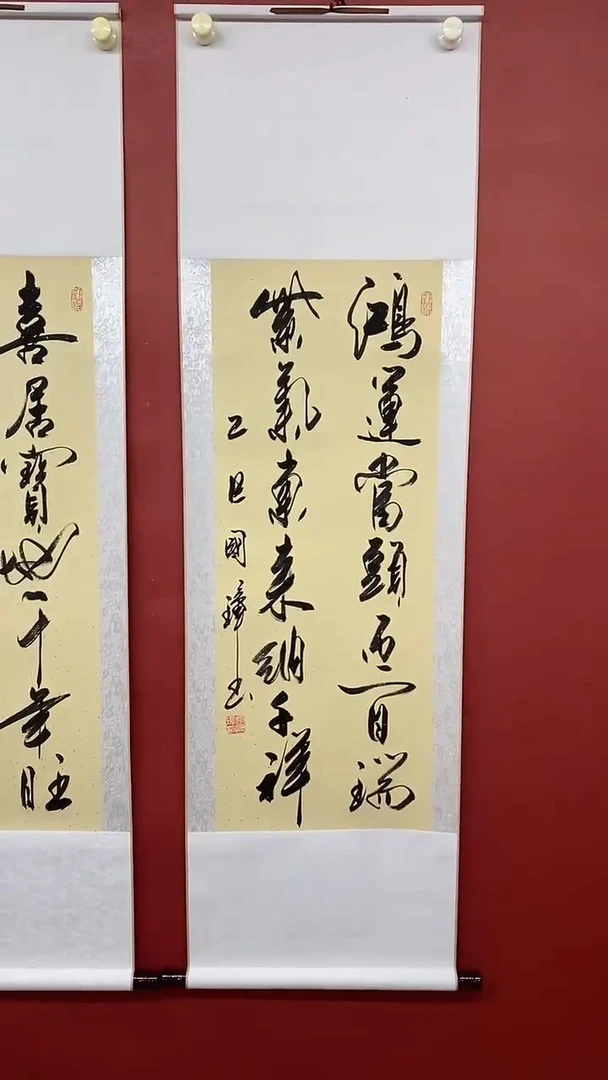 鴻運當頭迎百瑞
紫氣東來納千祥
乙巳國书
喜居寶地千年旺